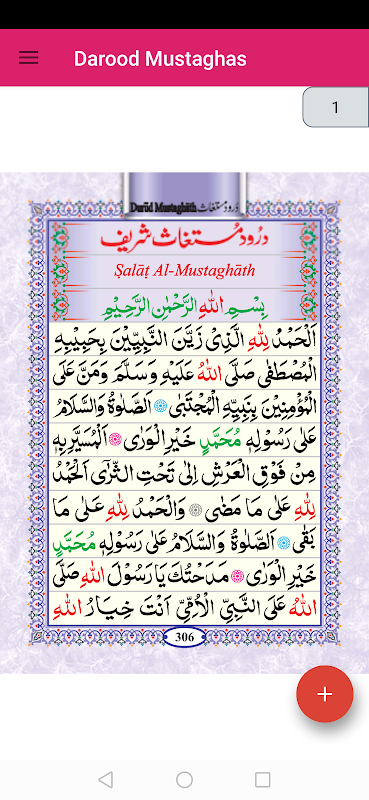 Darood Mustaghas
1
Darūd Mustaghāth درُود مُستغاث
درُود مُستغاث شریف
Ṣalāṭ Al-Mustaghāth
بِسْمِ اللهِ الرَّحْمٰنِ الرَّحِيْمِ
اَلْحَمْدُ لِلّٰهِ الَّذِیْ زَيَّنَ النَّبِيِّيْنَ بِحَبِيْبِهِ
الْمُصْطَفٰی صَلَّی اللهُ عَلَيْهِ وَسَلَّمَ وَمَنَّ عَلَی
الْمُؤْمِنِيْنَ بِنَبِيِّهِ الْمُجْتَبٰی اَلصَّلٰوةُ وَالسَّلَامُ
عَلٰی رَسُوْلِهٖ مُحَمَّدٍ خَيْرِ الْوَرٰی اَلْمُسَيَّرِ بِهٖ
مِنْ فَوْقِ الْعَرْشِ اِلٰی تَحْتِ الثَّرٰی اَلْحَمْدُ
لِلّٰهِ عَلٰی مَا مَضٰی وَالْحَمْدُ لِلّٰهِ عَلٰی مَا
بَقٰی اَلصَّلٰوةُ وَالسَّلَامُ عَلٰی رَسُوْلِهٖ مُحَمَّدٍ
خَيْرِ الْوَرٰی مَدَحْتُكَ يَا رَسُوْلَ اللهِ صَلَّی
اللهُ عَلَی النَّبِیِّ الْاُمِّیِّ اَنْتَ خِيَارُ اللهِ
306